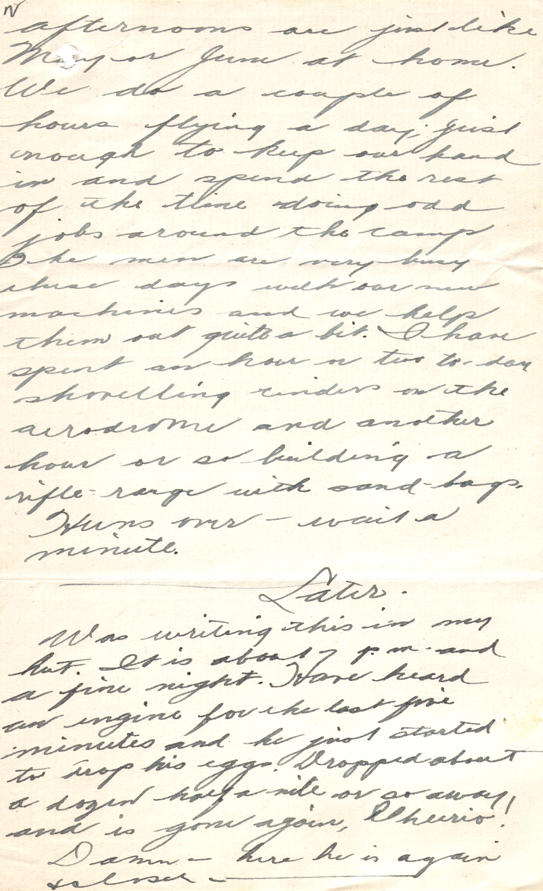 afternoons are just like
May or June at home.
We do a couple of
hours flying a day, just
enough to keep our hand
in and spend the rest
of the time doing odd
jobs around the camp
The men are very busy
these days with our new
machines and we help
them out quite a bit. I have
spent an hour or two to-day
shovelling cinders on the
aerodrome and another
hour or so building a
rifle-range with sand-bags.
Huns over - wait a
minute.
Later.
Was writing this in my
hut. It is about 7 p.m. and
a fine night. Have heard
an engine for the last five
minutes and he just started
to drop his eggs. Dropped about
a dozen half a mile or so away,
and is gone again, Cheerio!
Damn - here he is again
& closer -